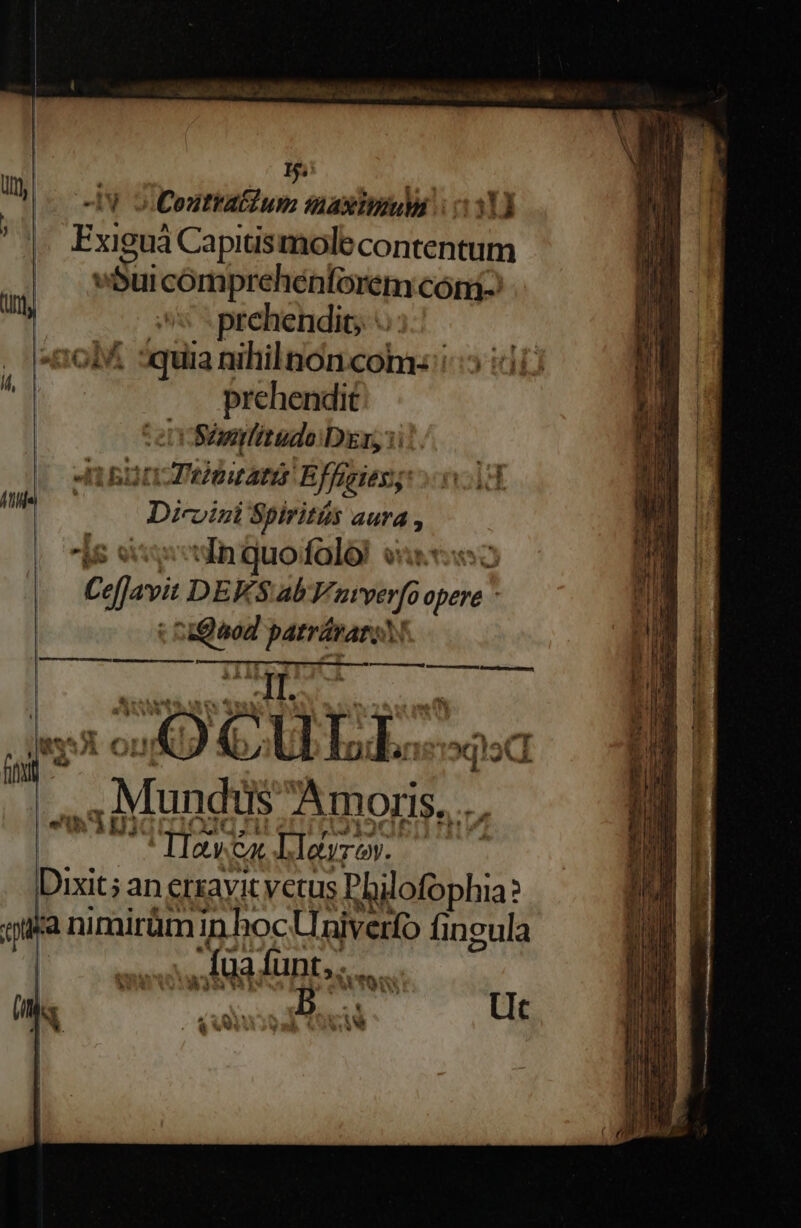 Contractum maximum
Exiguâ Capitis mole contentum
Sui comprehensorem com-
prehendit,
quia nihil non com-
prehendit
Similitudo DEI,
Trinitatis Effigies,
Divini Spiritûs aura,
In quo solo
Cessavit DEUS ab Universo opere
Quod patrârat.
II.
OCULI.
Mundus Amoris.
Dixit; an erravit vetus Philosophia?
nimirùm in hoc Universo singula
sua sunt,
B Ut